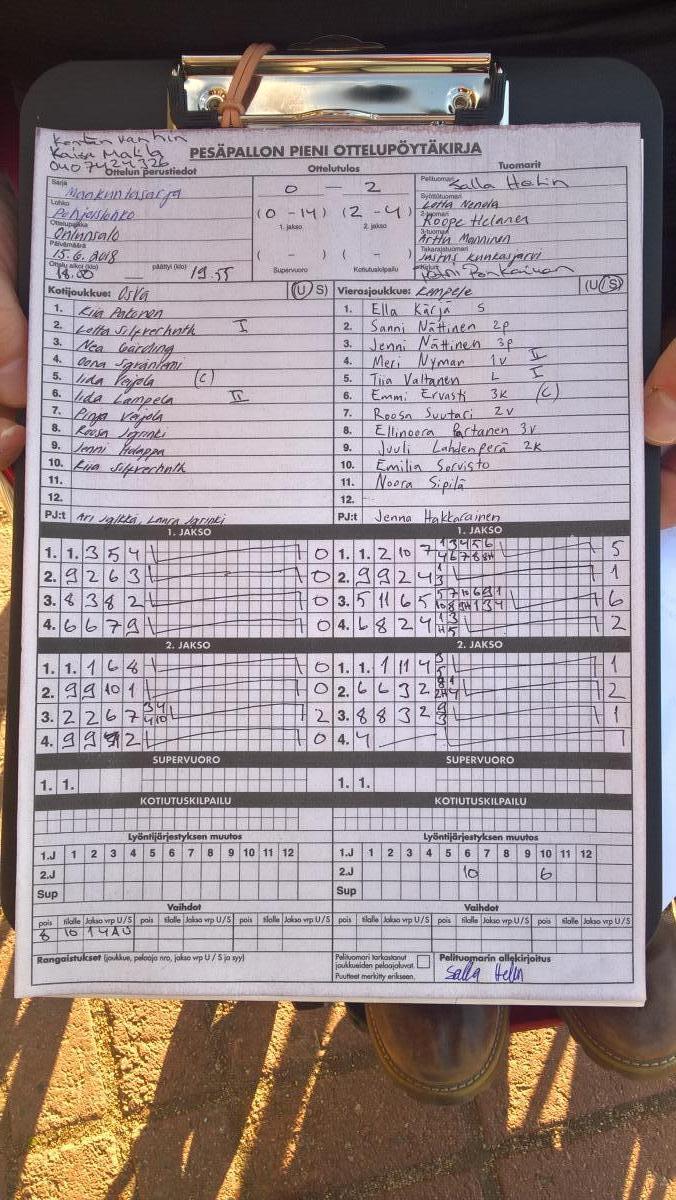 Kentän vanhin
Kaisa Makla
040 7424326
PESÄPALLON PIENI OTTELUPÖYTÄKIRJA
Ottelun perustiedot
Ottelutulos
Tuomarit
Sarja
Maakuntasarja
Lohko
Pohjoislohko
Ottelupaikka
Oulunsalo
Päivämäärä
15.6.2018
Ottelu alkoi (klo) 18.00 päättyi (klo) 19.55
0 — 2
(0 - 14) (2 - 4)
1. jakso 2. jakso
( - ) ( - )
Supervuoro Kotiutuskilpailu
Pelituomari Salla Helin
Syöttötuomari
Lotta Nenola
2-tuomari
Roope Helanen
3-tuomari
Arttu Manninen
Takarajatuomari
Justus
Kirjuri
Kotijoukkue: OsVa (U/S)
1. Kiia Pakonen
2. Lotta Silfverhuth I
3. Nea Garding
4. Oona
5. Iida Veijola (C)
6. Iida Lampela II
7. Pinja Veijola
8. Roosa Jarinki
9. Jenni Holappa
10. Kiia Silfverhuth
11.
12.
PJ:t Ari Jylkkä, Laura Jarinki
Vierasjoukkue: Kempele (U/S)
1. Ella Kärjä S
2. Sanni Nättinen 2p
3. Jenni Nättinen 3p
4. Meri Nyman 1v II
5. Tiia Valtanen L I
6. Emmi Ervasti 3k (C)
7. Roosa Suutari 2v
8. Ellinoora Partanen 3v
9. Juuli Lahdenperä 2k
10. Emilia Sorvisto
11. Noora Sipilä
12.
PJ:t Jenna Hakkarainen
1. JAKSO 1. JAKSO
1. 1. 3 5 4 0
2. 9 2 6 3 0
3. 8 3 8 2 0
4. 6 6 7 9 0
1. 1. 2 10 7 1 3 4 5 6 5
4 6 7 8
2. 9 9 2 4 1 1
3
3. 5 11 6 5 5 7 10 6 9 1 6
10 8 1 3 4
4. 6 8 2 4 1 3 2
5
2. JAKSO 2. JAKSO
1. 1. 1 6 8 0
2. 9 9 10 1 0
3. 2 2 6 7 3 4 2
4 10
4. 9 9 2 0
1. 1. 1 11 4 3 1
5
2. 6 6 3 2 8 1 2
3. 8 8 3 2 9 1
3
4. 4
SUPERVUORO SUPERVUORO
1. 1. 1. 1.
KOTIUTUSKILPAILU KOTIUTUSKILPAILU
Lyöntijärjestyksen muutos Lyöntijärjestyksen muutos
1.J 1 2 3 4 5 6 7 8 9 10 11 12
2.J
Sup
1.J 1 2 3 4 5 6 7 8 9 10 11 12
2.J 10 6
Sup
Vaihdot Vaihdot
pois tilalle Jakso vrp U/S pois tilalle Jakso vrp U/S pois tilalle Jakso vrp U/S
8 10 1 4AU
pois tilalle Jakso vrp U/S pois tilalle Jakso vrp U/S pois tilalle Jakso vrp U/S
Rangaistukset (joukkue, pelaaja nro, jakso vrp U / S ja syy)
Pelituomari tarkastanut
joukkueiden pelaajaluvat.
Puutteet merkitty erikseen.
Pelituomarin allekirjoitus
Salla Helin